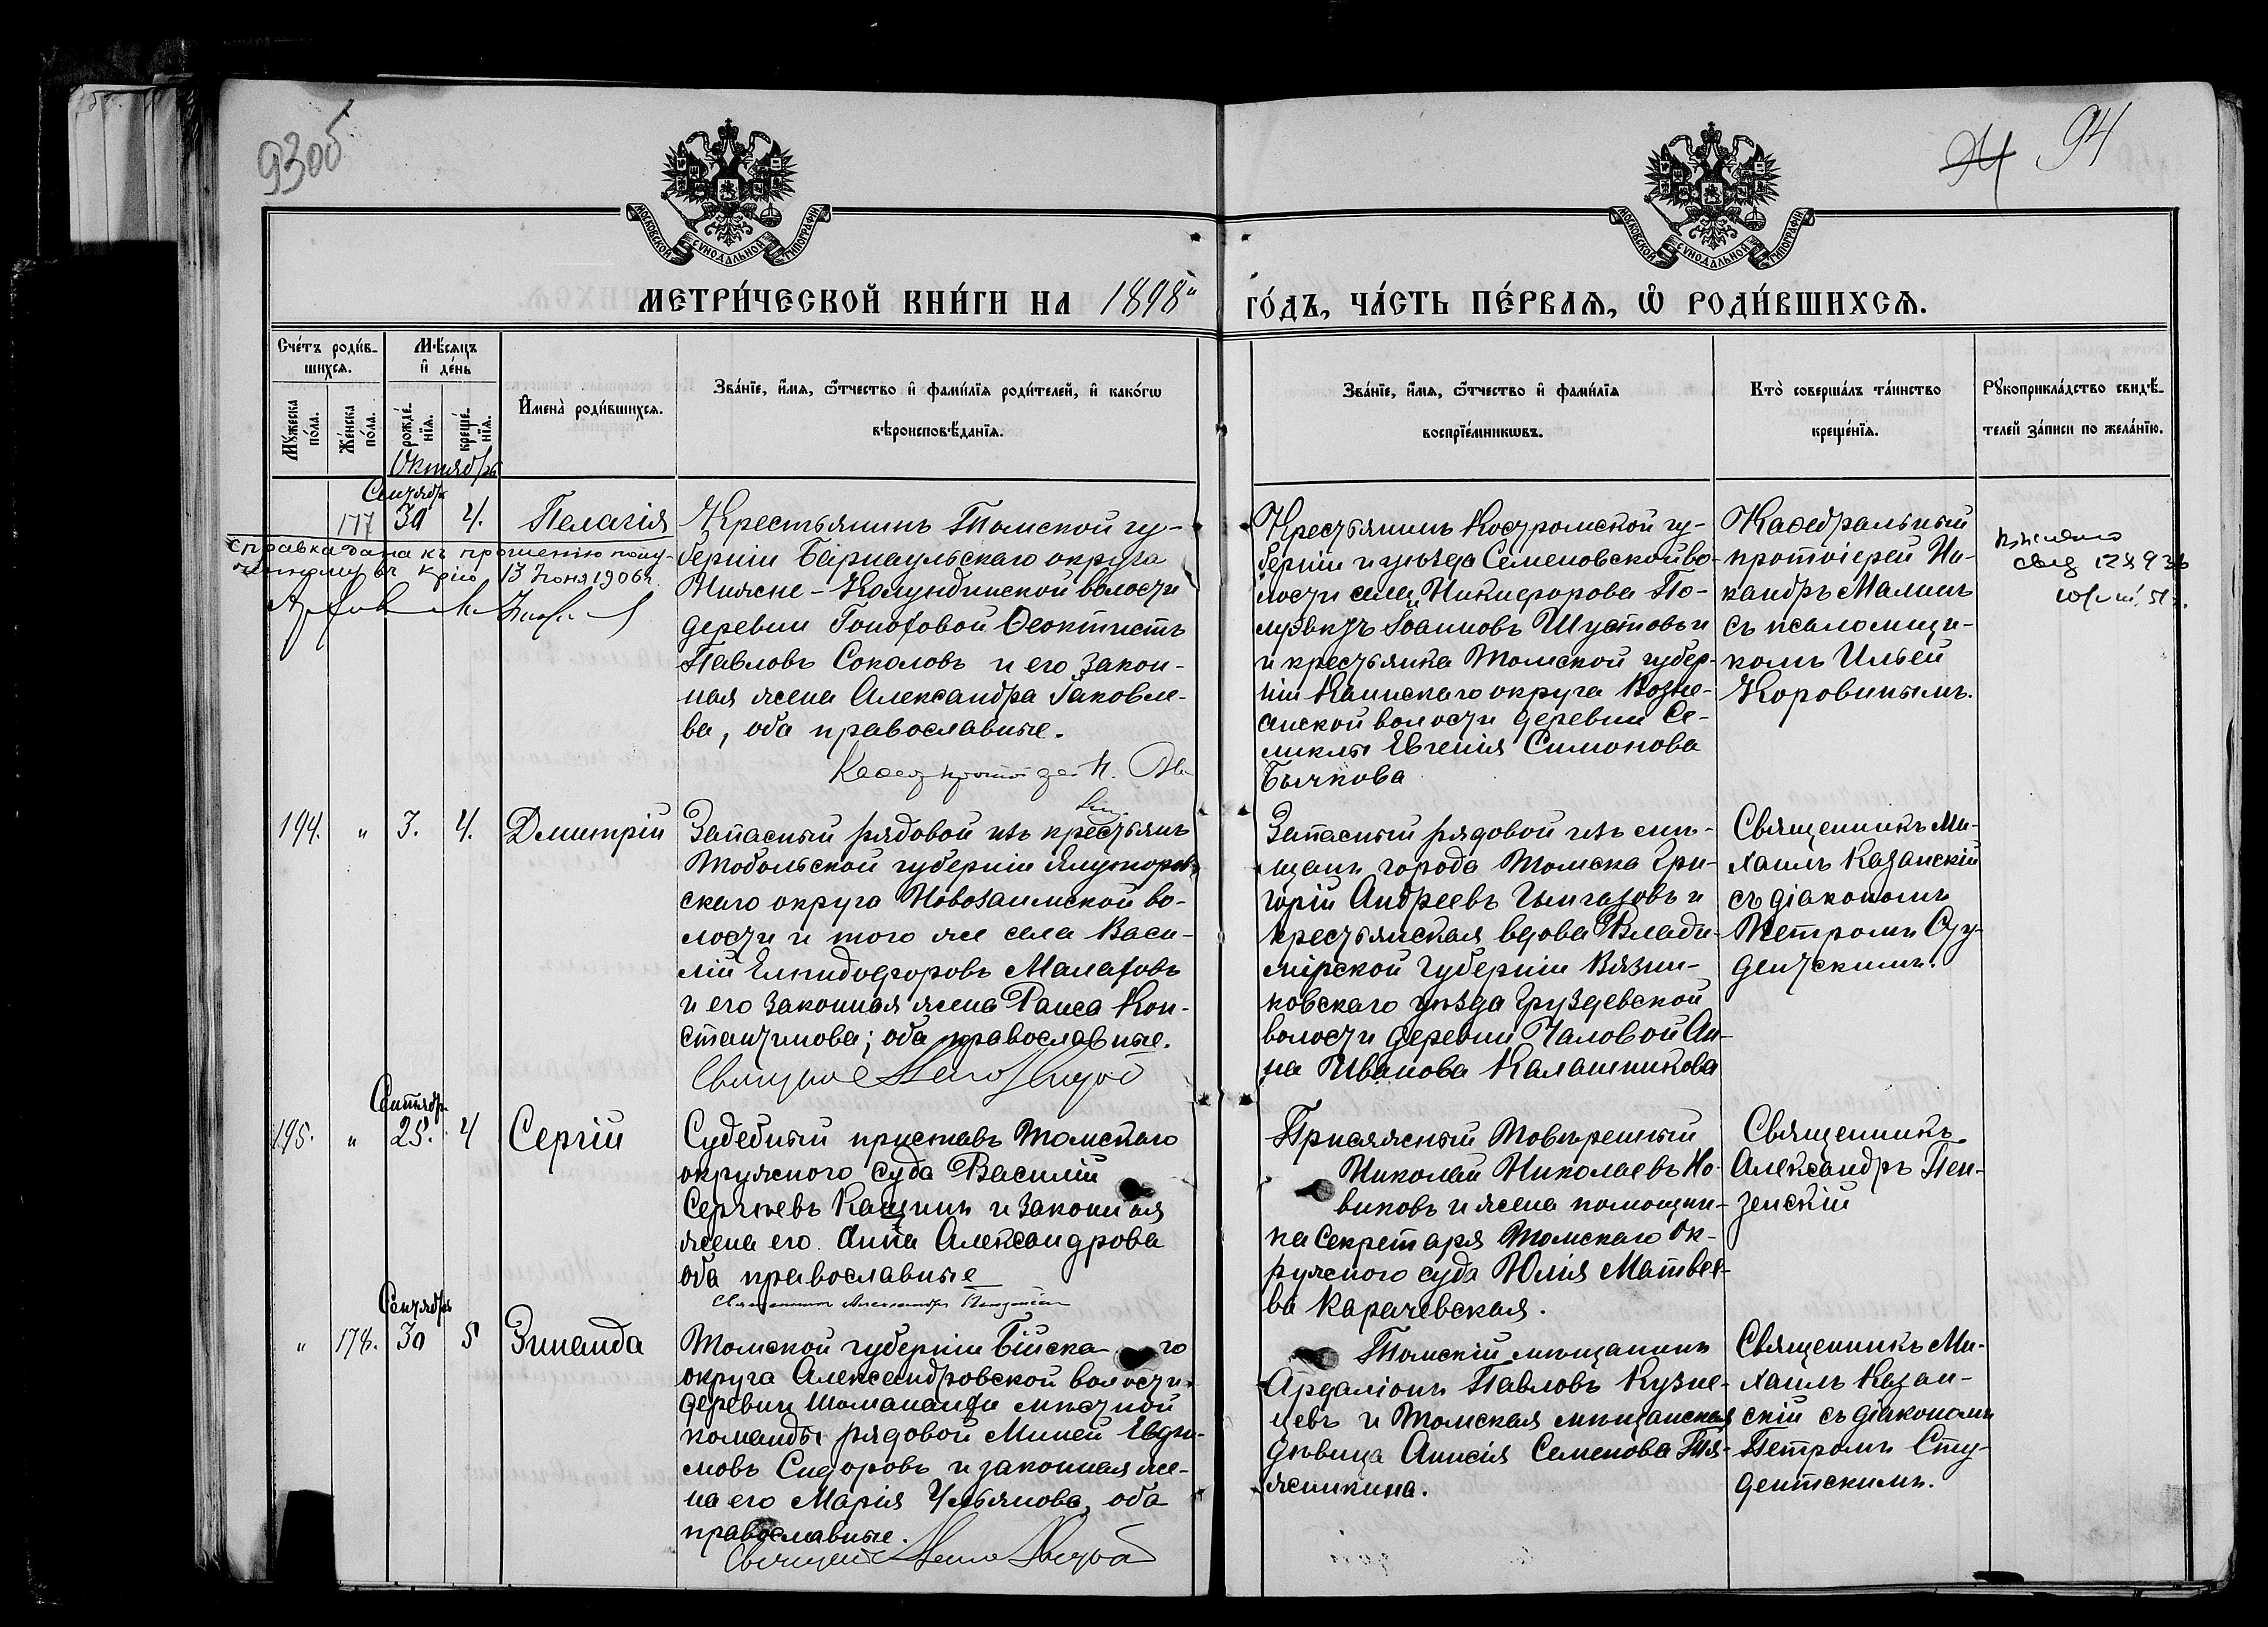 93об
94
МОСКОВСКОЙ СѴНОДАЛЬНОЙ ТИПОГРАФІИ
МОСКОВСКОЙ СѴНОДАЛЬНОЙ ТИПОГРАФІИ
МЕТРИ́ЧЕСКОЙ КНИ́ГИ НА 1898й
ГО́ДЪ, ЧА́СТЬ ПЕ́РВАѦ, Ѡ҆ РОДИ́ВШИХСѦ.
Сче́тъ роди́в-
шихсѧ.
Мѣ́сѧцъ
и҆ де́нь
Мꙋ́жеска
по́ла.
Же́нска
по́ла.
рожде́-
нїѧ.
креще́-
нїѧ.
И҆мена̀ роди́вшихсѧ.
Зва́нїе, и҆́мѧ, ѻ҆́тчество и҆ фами́лїѧ роди́телей, и҆ како́гѡ
вѣроисповѣ́данїѧ.
Зва́нїе, и҆́мѧ, ѻ҆́тчество и҆ фами́лїѧ
воспрїе́мникѡвъ.
Кто̀ соверша́лъ та́инство
креще́нїѧ.
Рꙋкоприкла́дство свидѣ́-
телей за́писи по жела́нїю.
Октября
Сентября
177 30 4. Пелагія
справка дана къ прошенію
13 Іюня 1906 г.
Крестьянинъ Томской гу-
берніи Барнаульскаго округа
Нижне-Кулундинской волости
деревни Гоноховой Ѳеоктистъ
Павловъ Соколовъ и его закон-
ная жена Александра Іаковле-
ва, оба православные.
Крестьянинъ Костромской гу-
берніи и уѣзда Семеновской во-
лости села Никифорова По-
Іоанновъ Шустовъ и
и крестьянка Томской губер-
ніи Каинскаго округа Возне-
сенской волости деревни Се-
миклы Евгенія Симонова
Бычкова
Каѳедральный
протоіерей Ни-
кандръ Малинъ
съ псаломщи-
комъ Ильей
Коровинымъ.
194. " 3. 4. Дмитрій
Запасный рядовой изъ крестьянъ
Тобольской губерніи Ялуторов-
скаго округа Новозаимской во-
лости и того же села Васи-
лій Елпидофоровъ Малаховъ
и его законная жена Раиса Кон-
стантинова; оба православные.
Запасный рядовой изъ мѣ-
щанъ города Томска Гри-
горій Андреевъ и
крестьянская вдова Влади-
мірской губерніи Вязни-
ковскаго уѣзда Груздевской
волости деревни Паловой Ан-
на Иванова Калашникова
Священникъ Ми-
хаилъ Казанскій
съ діакономъ
Петромъ Сту-
дентскимъ.
Сентябр.
195. " 25. 4 Сергій
Судебный приставъ Томскаго
окружного суда Василій
Сергѣевъ Кащинъ и законная
жена его Анна Александрова
оба православные
Священникъ Александръ Пензенскій
Присяжный Повѣренный
Николай Николаевъ Но-
виковъ и жена помощни-
ка секретаря Томскаго Ок-
ружного суда Юлія Матвее-
ва Карачевская.
Священникъ
Александръ Пен-
зенскій
Сентября
" 178. 30 5 Зинаида
Томской губерніи Бійска-го
округа Александровской волости
деревни мѣстной
команды рядовой Миней Евдки-
мовъ Сидоровъ и законная же-
на его Марія Ульянова, оба
православные.
Томскій мѣщанинъ
Ардаліонъ Павловъ Кузне-
цевъ и Томская мѣщанская
дѣвица Анисія Семенова Тя-
жникина.
Священникъ Ми-
хаилъ Казан-
скій съ діакономъ
Петромъ Сту-
дентскимъ.